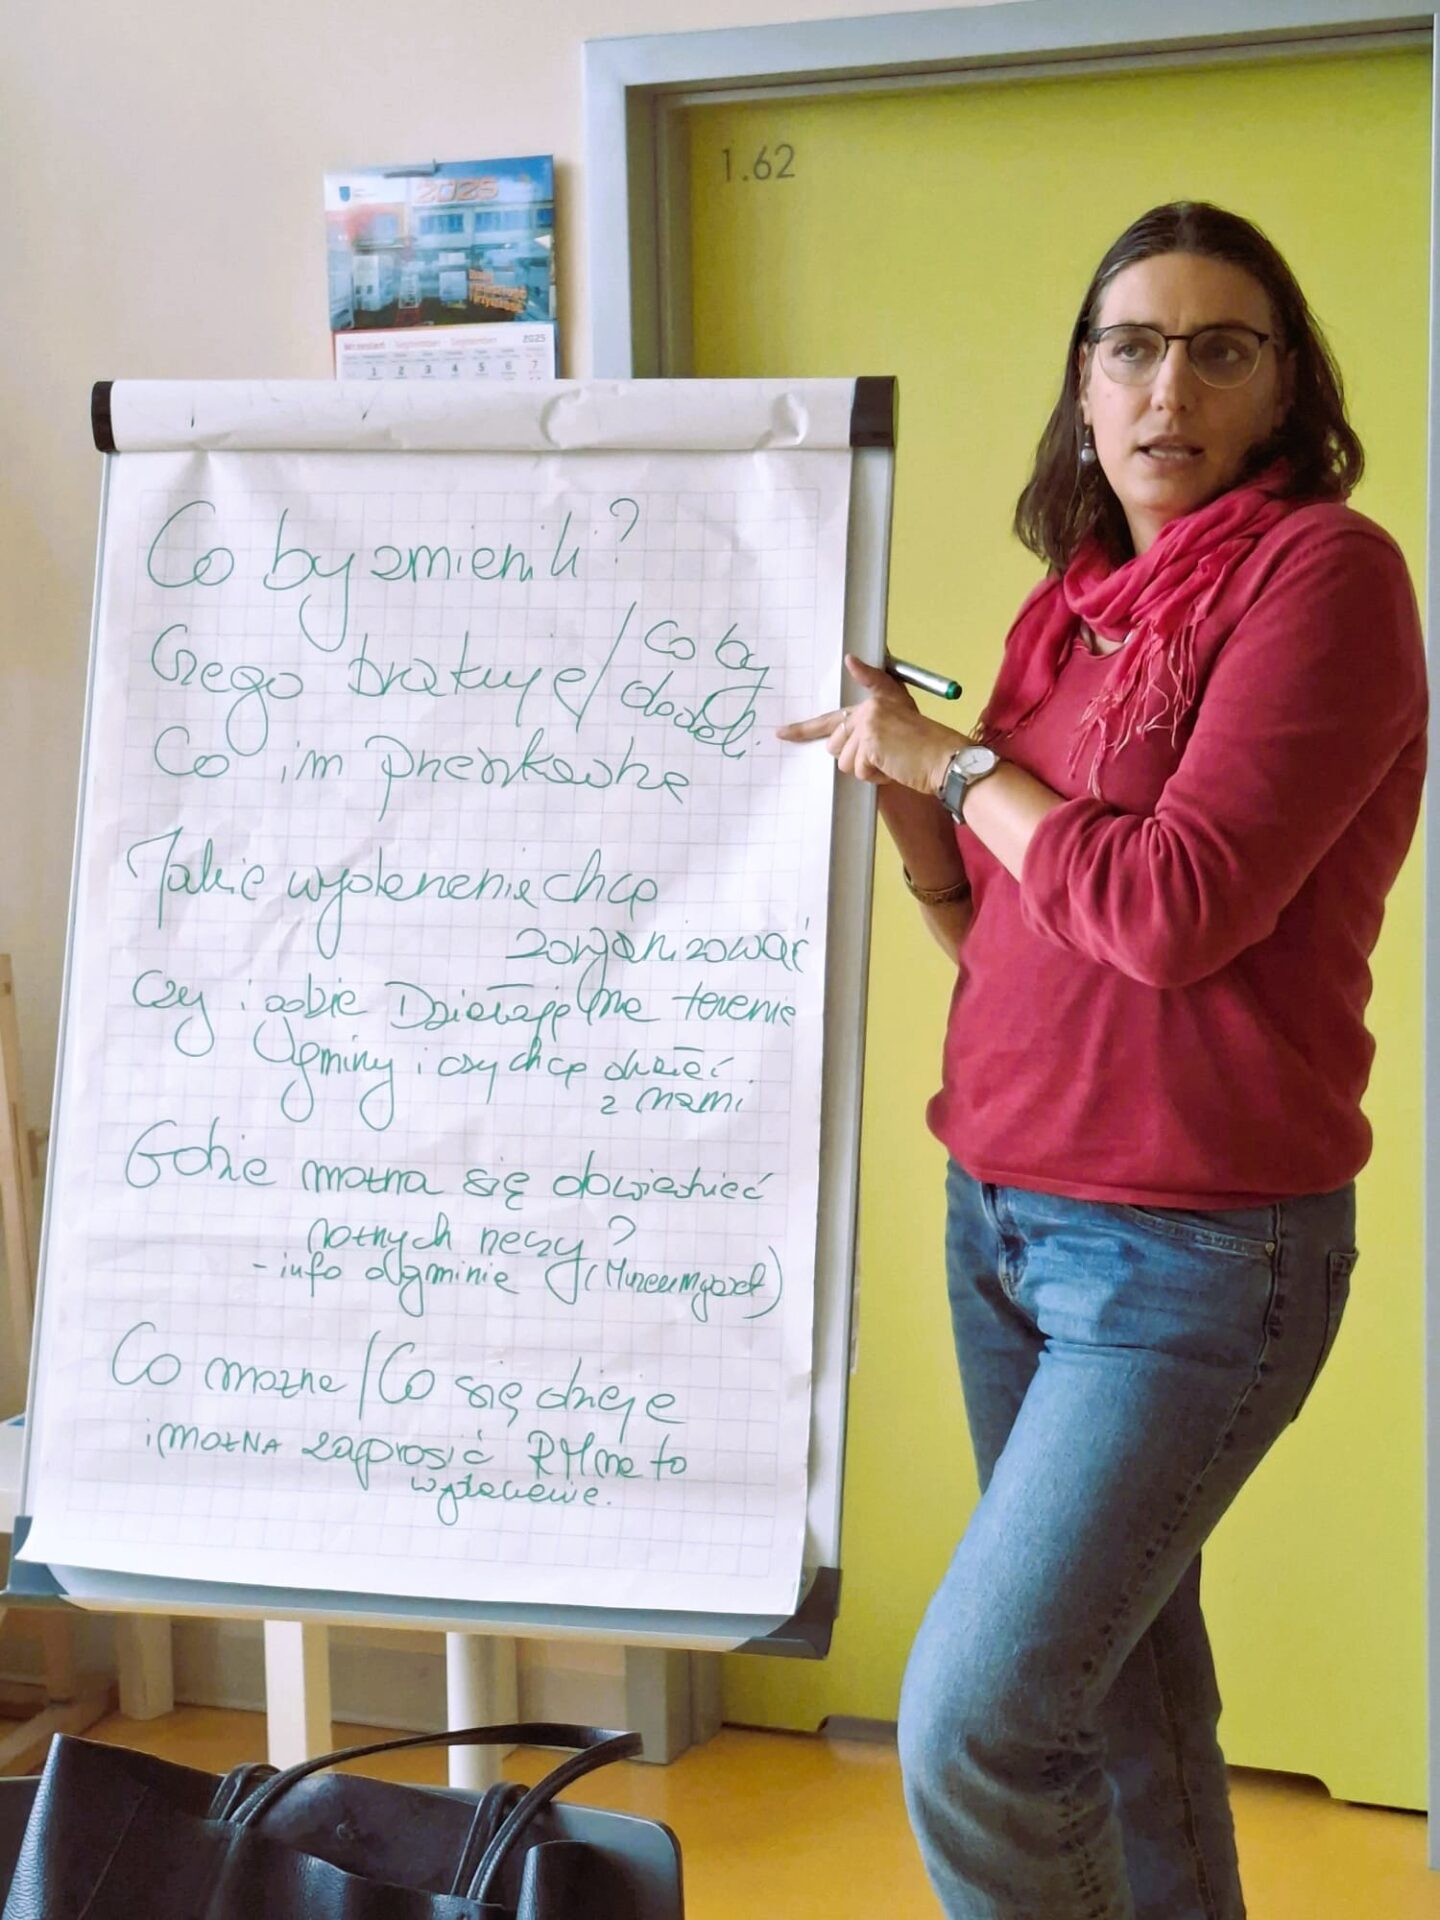 1.62
2025
wrzesień September September 2025
1 2 3 4 5 6 7
Co by zmienili?
Czego brakuje / co by
dodali
Co im przeszkadza
Jakie wydarzenie chcą
zorganizować
Czy i gdzie Działają (na terenie
Ugminy i czy chcą działać
z nami
Gdzie można się dowiedzieć
różnych rzeczy?
- info o Ugminie (Muzeum
Co można / Co się dzieje
i MOŻNA zaprosić RM na to
wydarzenie.